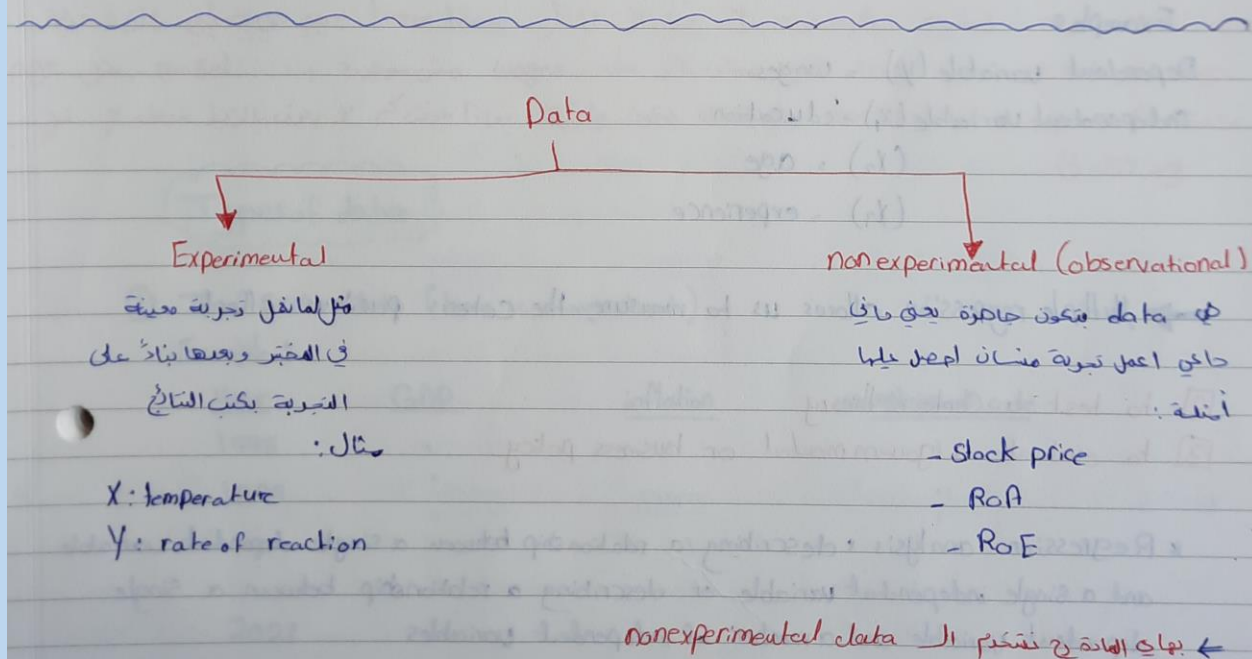 Data
Experimental
مثل لما نعمل تجربة معينة
في المختبر وبعدها بناءً على
التجربة بكتب النتائج
مثال:
X: temperature
Y: rate of reaction
non experimental (observational)
هي data بتكون جاهزة يعني ما في
داعي اعمل تجربة منشان احصل عليها
أمثلة:
- Stock price
- RoA
- RoE
← بهاي المادة رح نستخدم الـ nonexperimental data